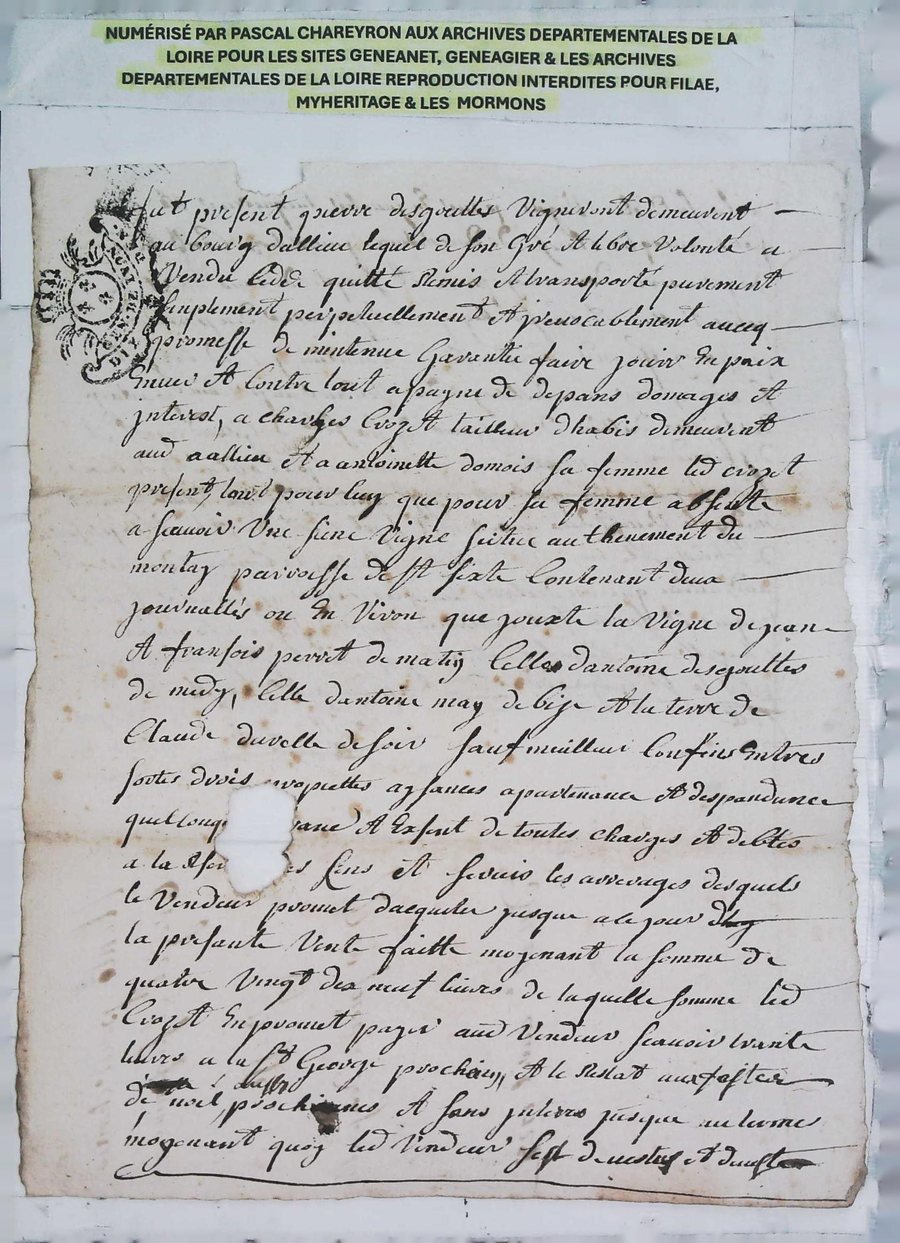 NUMÉRISÉ PAR PASCAL CHAREYRON AUX ARCHIVES DEPARTEMENTALES DE LA
LOIRE POUR LES SITES GENEANET, GENEAGIER & LES ARCHIVES
DEPARTEMENTALES DE LA LOIRE REPRODUCTION INTERDITES POUR FILAE,
MYHERITAGE & LES MORMONS
fut present pierre desgoutles Vigneront demeurent
au bourg dallieu lequel de son Gré A libre Volonté a
Vendu cédé quitté Remis A transporté purement
simplement perpetuellement A jrevocablement avecq
promesse de mintenue Garantie faire jouir En paix
Enver A Contre tout a payne de depans domages At
jnterest, a charles CrozAt tailleur dhabis demeurent
aud aallieu At a antoinette domois sa femme led crozet
present, tout pour luy que pour sa femme absente
a scavoir Une siene Vigne scitue au thenement du
montay parroisse de st sixte Contenant deux
journallés ou En Viron que jouxte la Vigne de jean
A fransois perret de matin Celle dantoine desgouttes
de medy, Celle dantoine may de bize A la terre de
Claude duvelle de soir sauf meilleur Confins Entres
sortes drois proprietes aysances apartenance A despandance
quelconq A Exsent de toutes charges A debtes
a la Cens At servis les arrerages desquels
le Vendeur promet dacquiter jusque a ce jour
la presante Vente faitte moyenant la somme de
quatre Vingt dix neuf livres de laquelle somme led
CrozAt En promet payer aud Vendeur scavoir trante
livres a la st George prochein, A le Restat aux festes
de noel, prochienes A sans jnterest jusque au terme
moyenant quoy led Vendeur sest devestus A